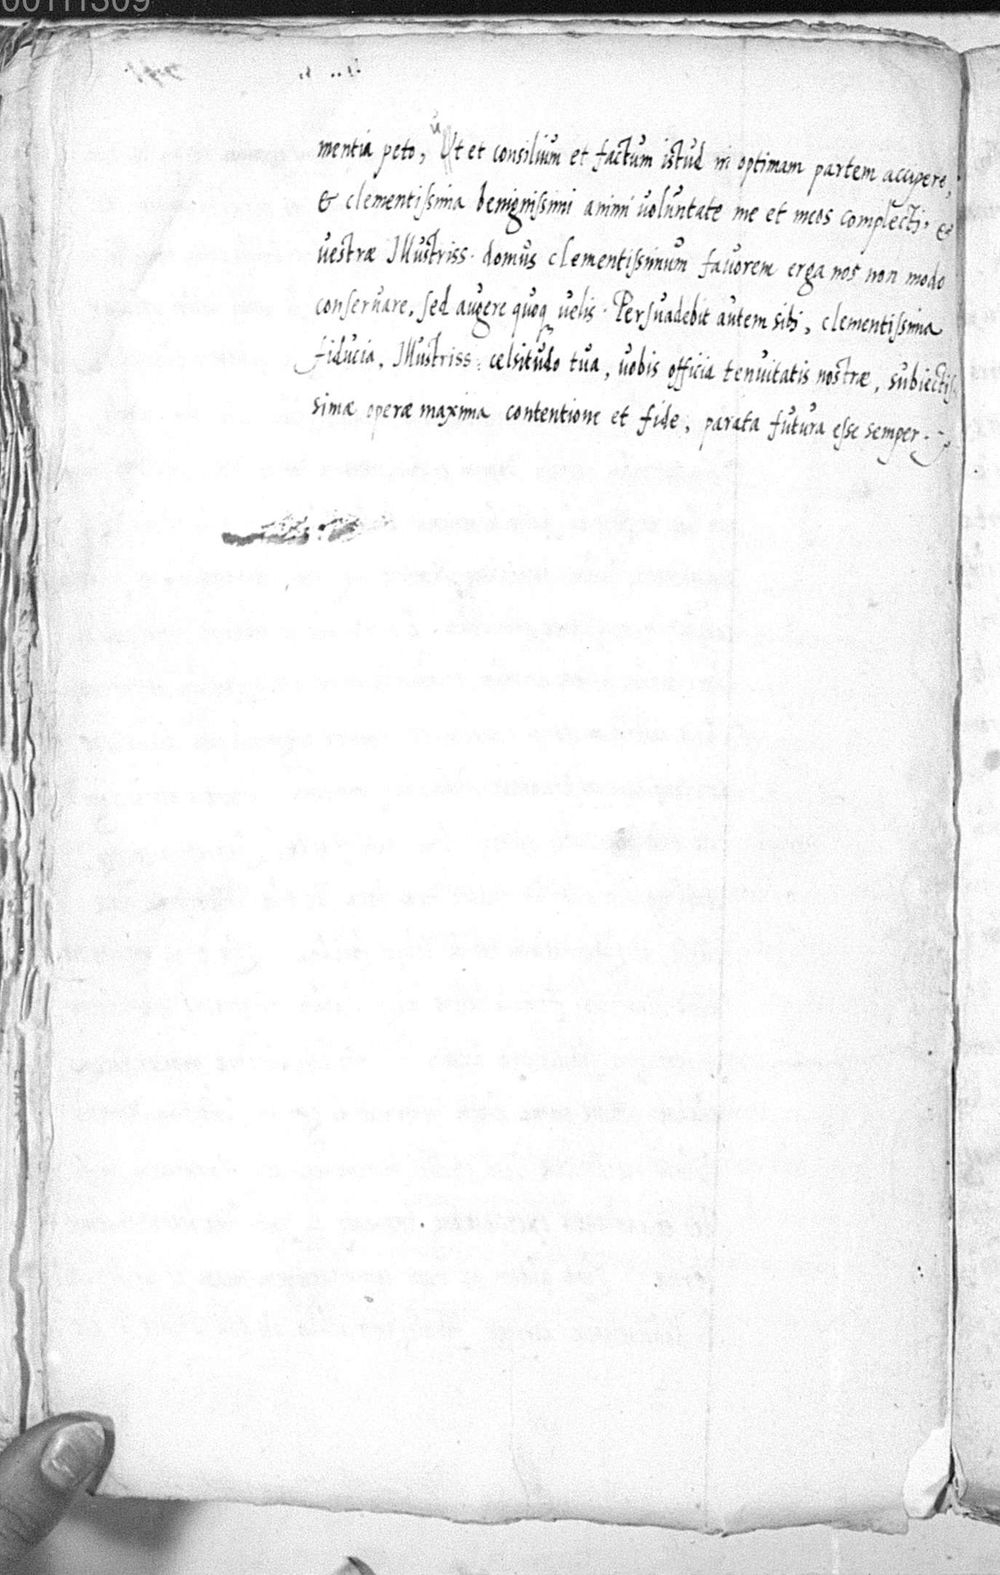 00111309
mentia peto, Ut et consilium et factum istud in optimam partem accipere,
& clementissima benignissimi animi voluntate me et meos complecti, &
vestræ Illustriss. domus clementissimum favorem erga nos non modo
conservare, sed augere quoq velis. Persuadebit autem sibi, clementissima
fiducia, Illustriss. celsitudo tua, vobis officia tenuitatis nostræ, subiectis
simæ operæ maxima contentione et fide, parata futura esse semper.